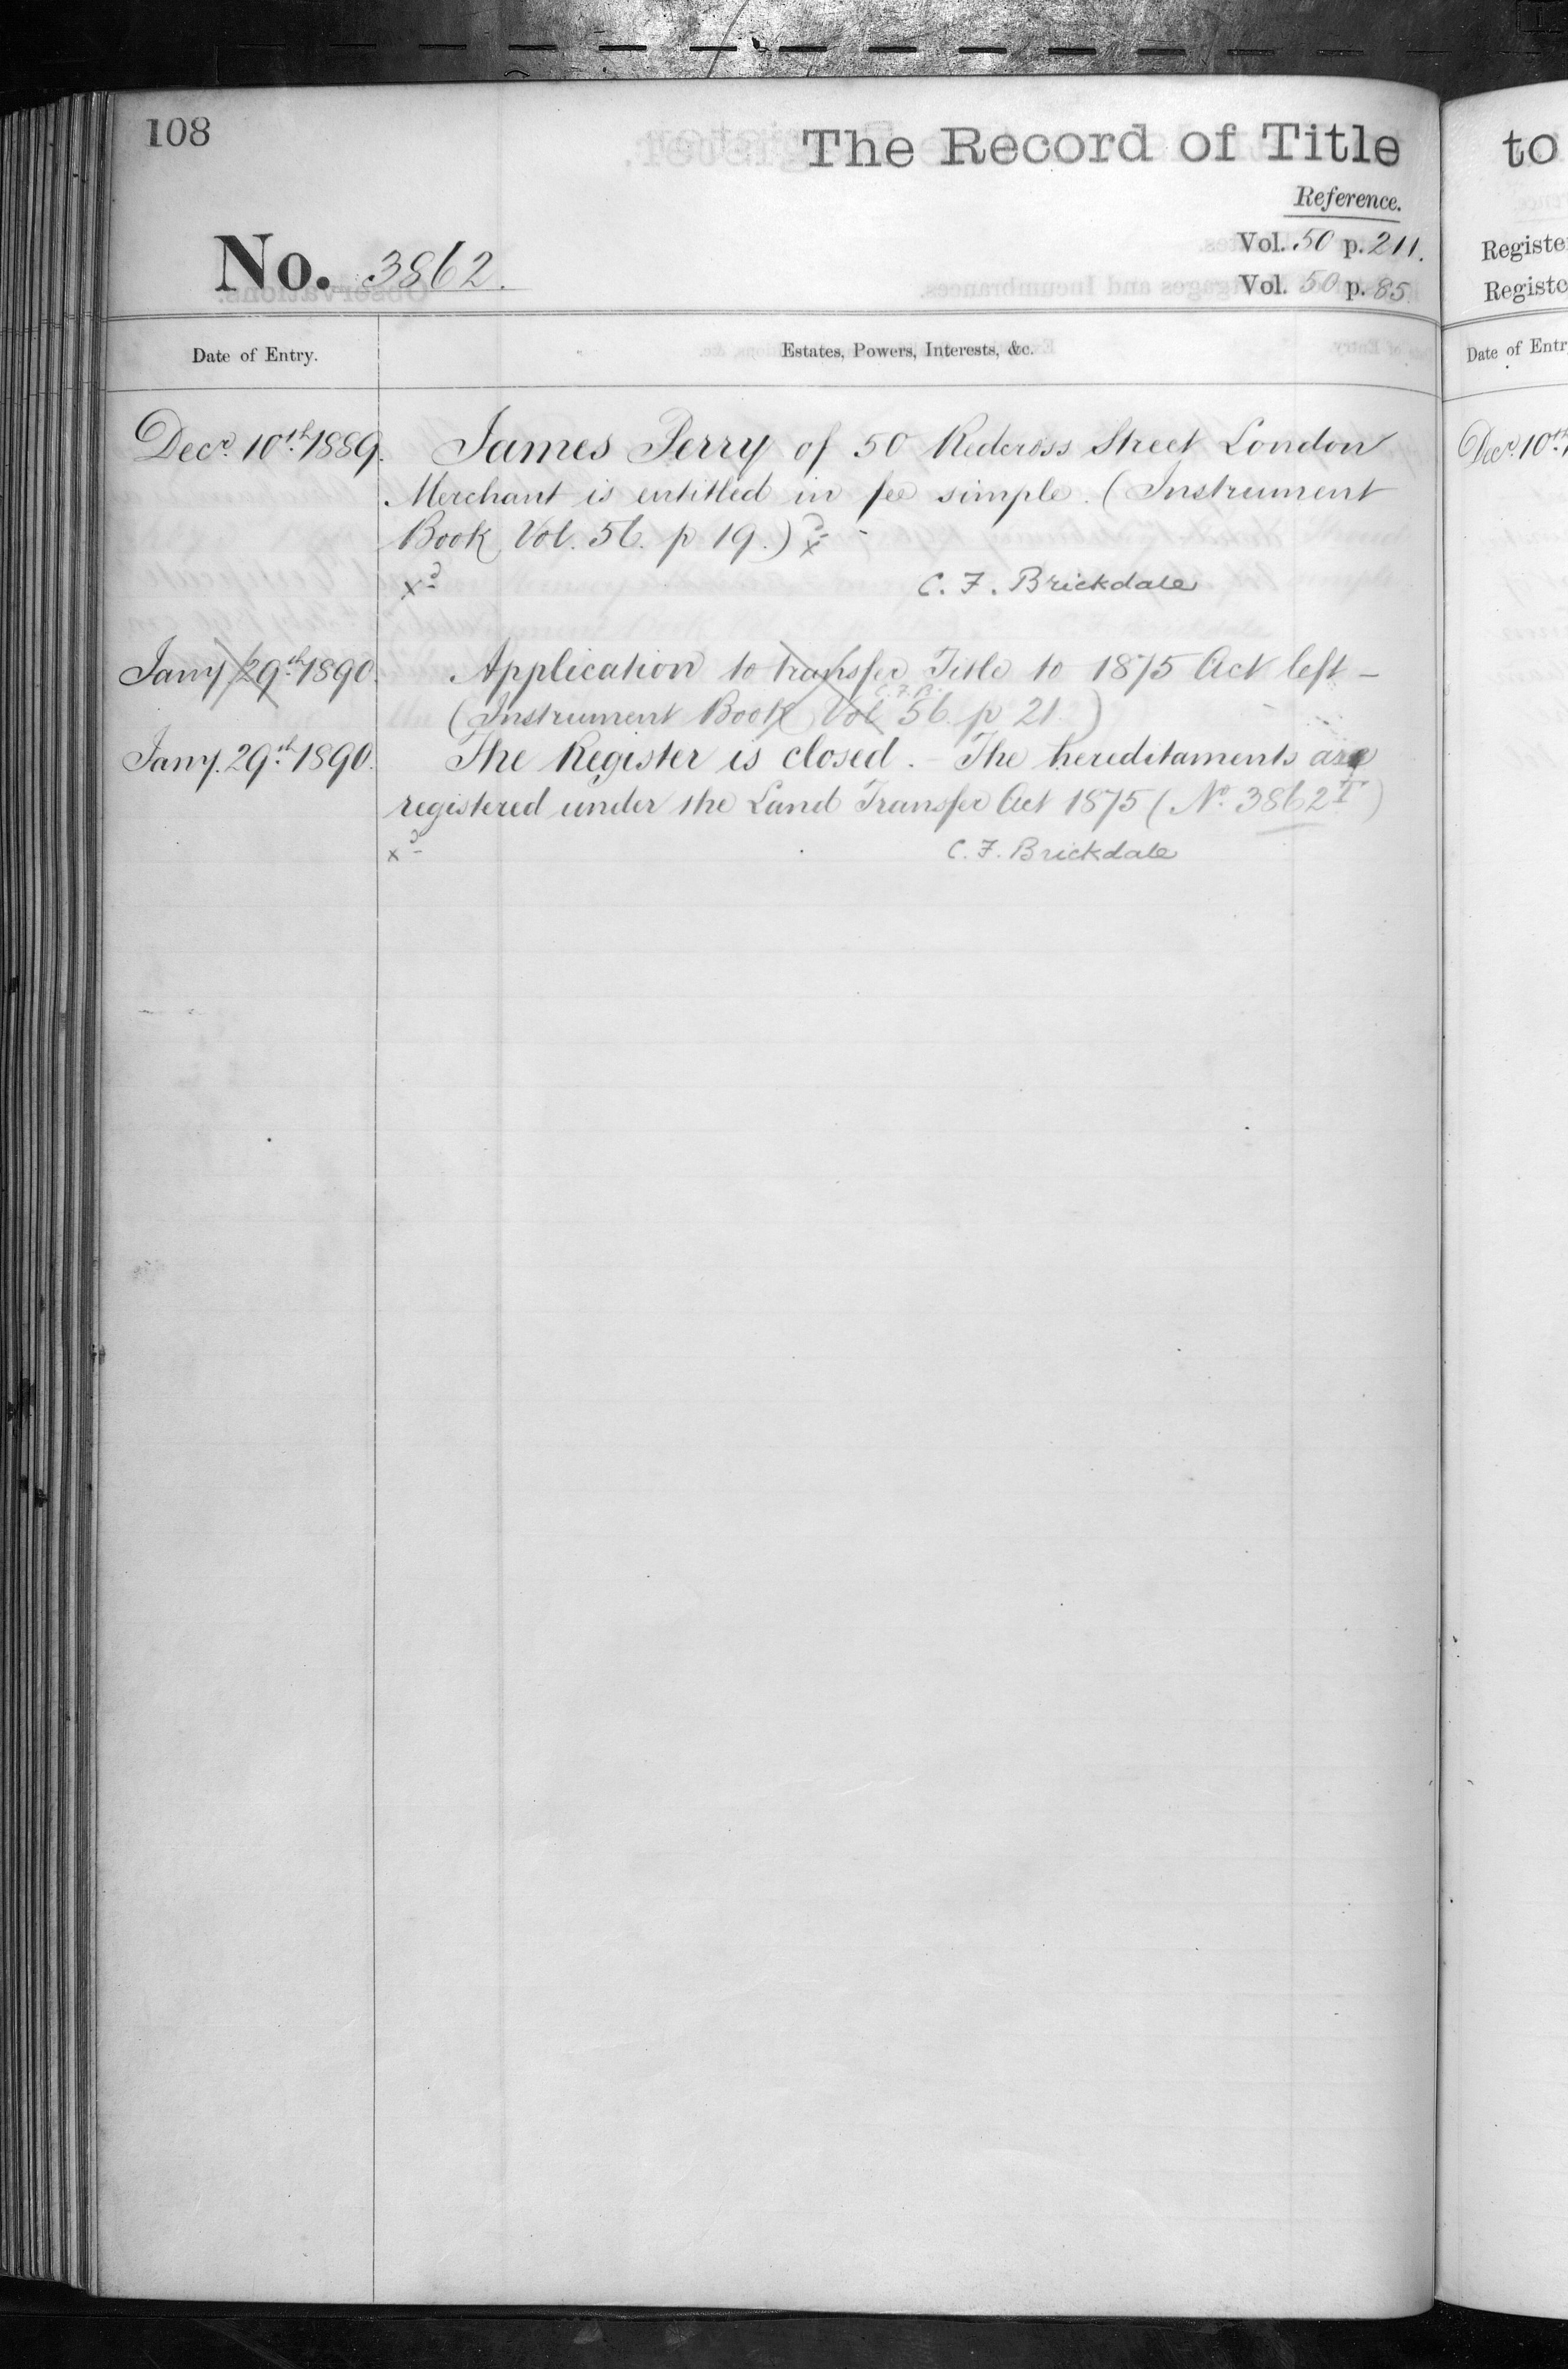 108
The Record of Title
Reference.
No. 3862.
Vol. 50 p. 211.
Vol. 50 p. 85
Date of Entry.
Estates, Powers, Interests, &c.
Decr. 10th. 1889. James Perry of 50 Redcross Street London
Merchant is entitled in fee simple. (Instrument
Book Vol. 56. p 19.) xd -
xd
C. F. Brickdale
Jany 29th. 1890. Application to transfer Title to 1875 Act left –
C.F.B.
(Instrument Book Vol 56. p 21.)
Jany. 29th. 1890. The Register is closed. – The hereditaments are
registered under the Land Transfer Act 1875 (No. 3862T)
xd
C. F. Brickdale
to
Registe
Registe
Date of Entr
Decr. 10th. 1